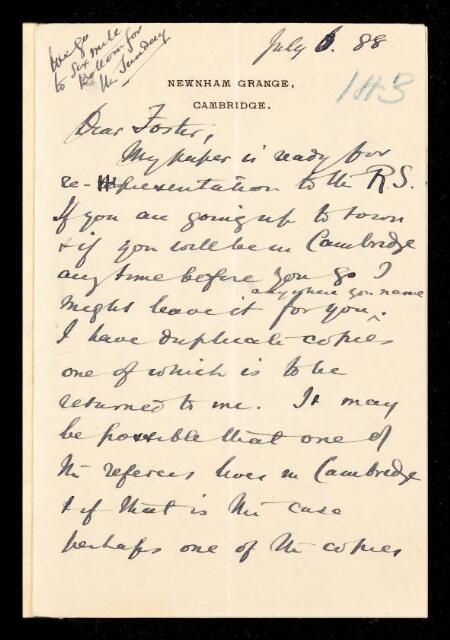 We go
to Six Mile
Bottom for
the Sunday
July 6. 88
143
NEWNHAM GRANGE,
CAMBRIDGE.
Dear Foster,
My paper is ready for
re-presentation to the R.S.
If you are going up to town
& if you will be in Cambridge
any time before you go I
might leave it for you anywhere you name.
I have duplicate copies
one of which is to be
returned to me. It may
be possible that one of
the referees lives in Cambridge
& if that is the case
perhaps one of the copies